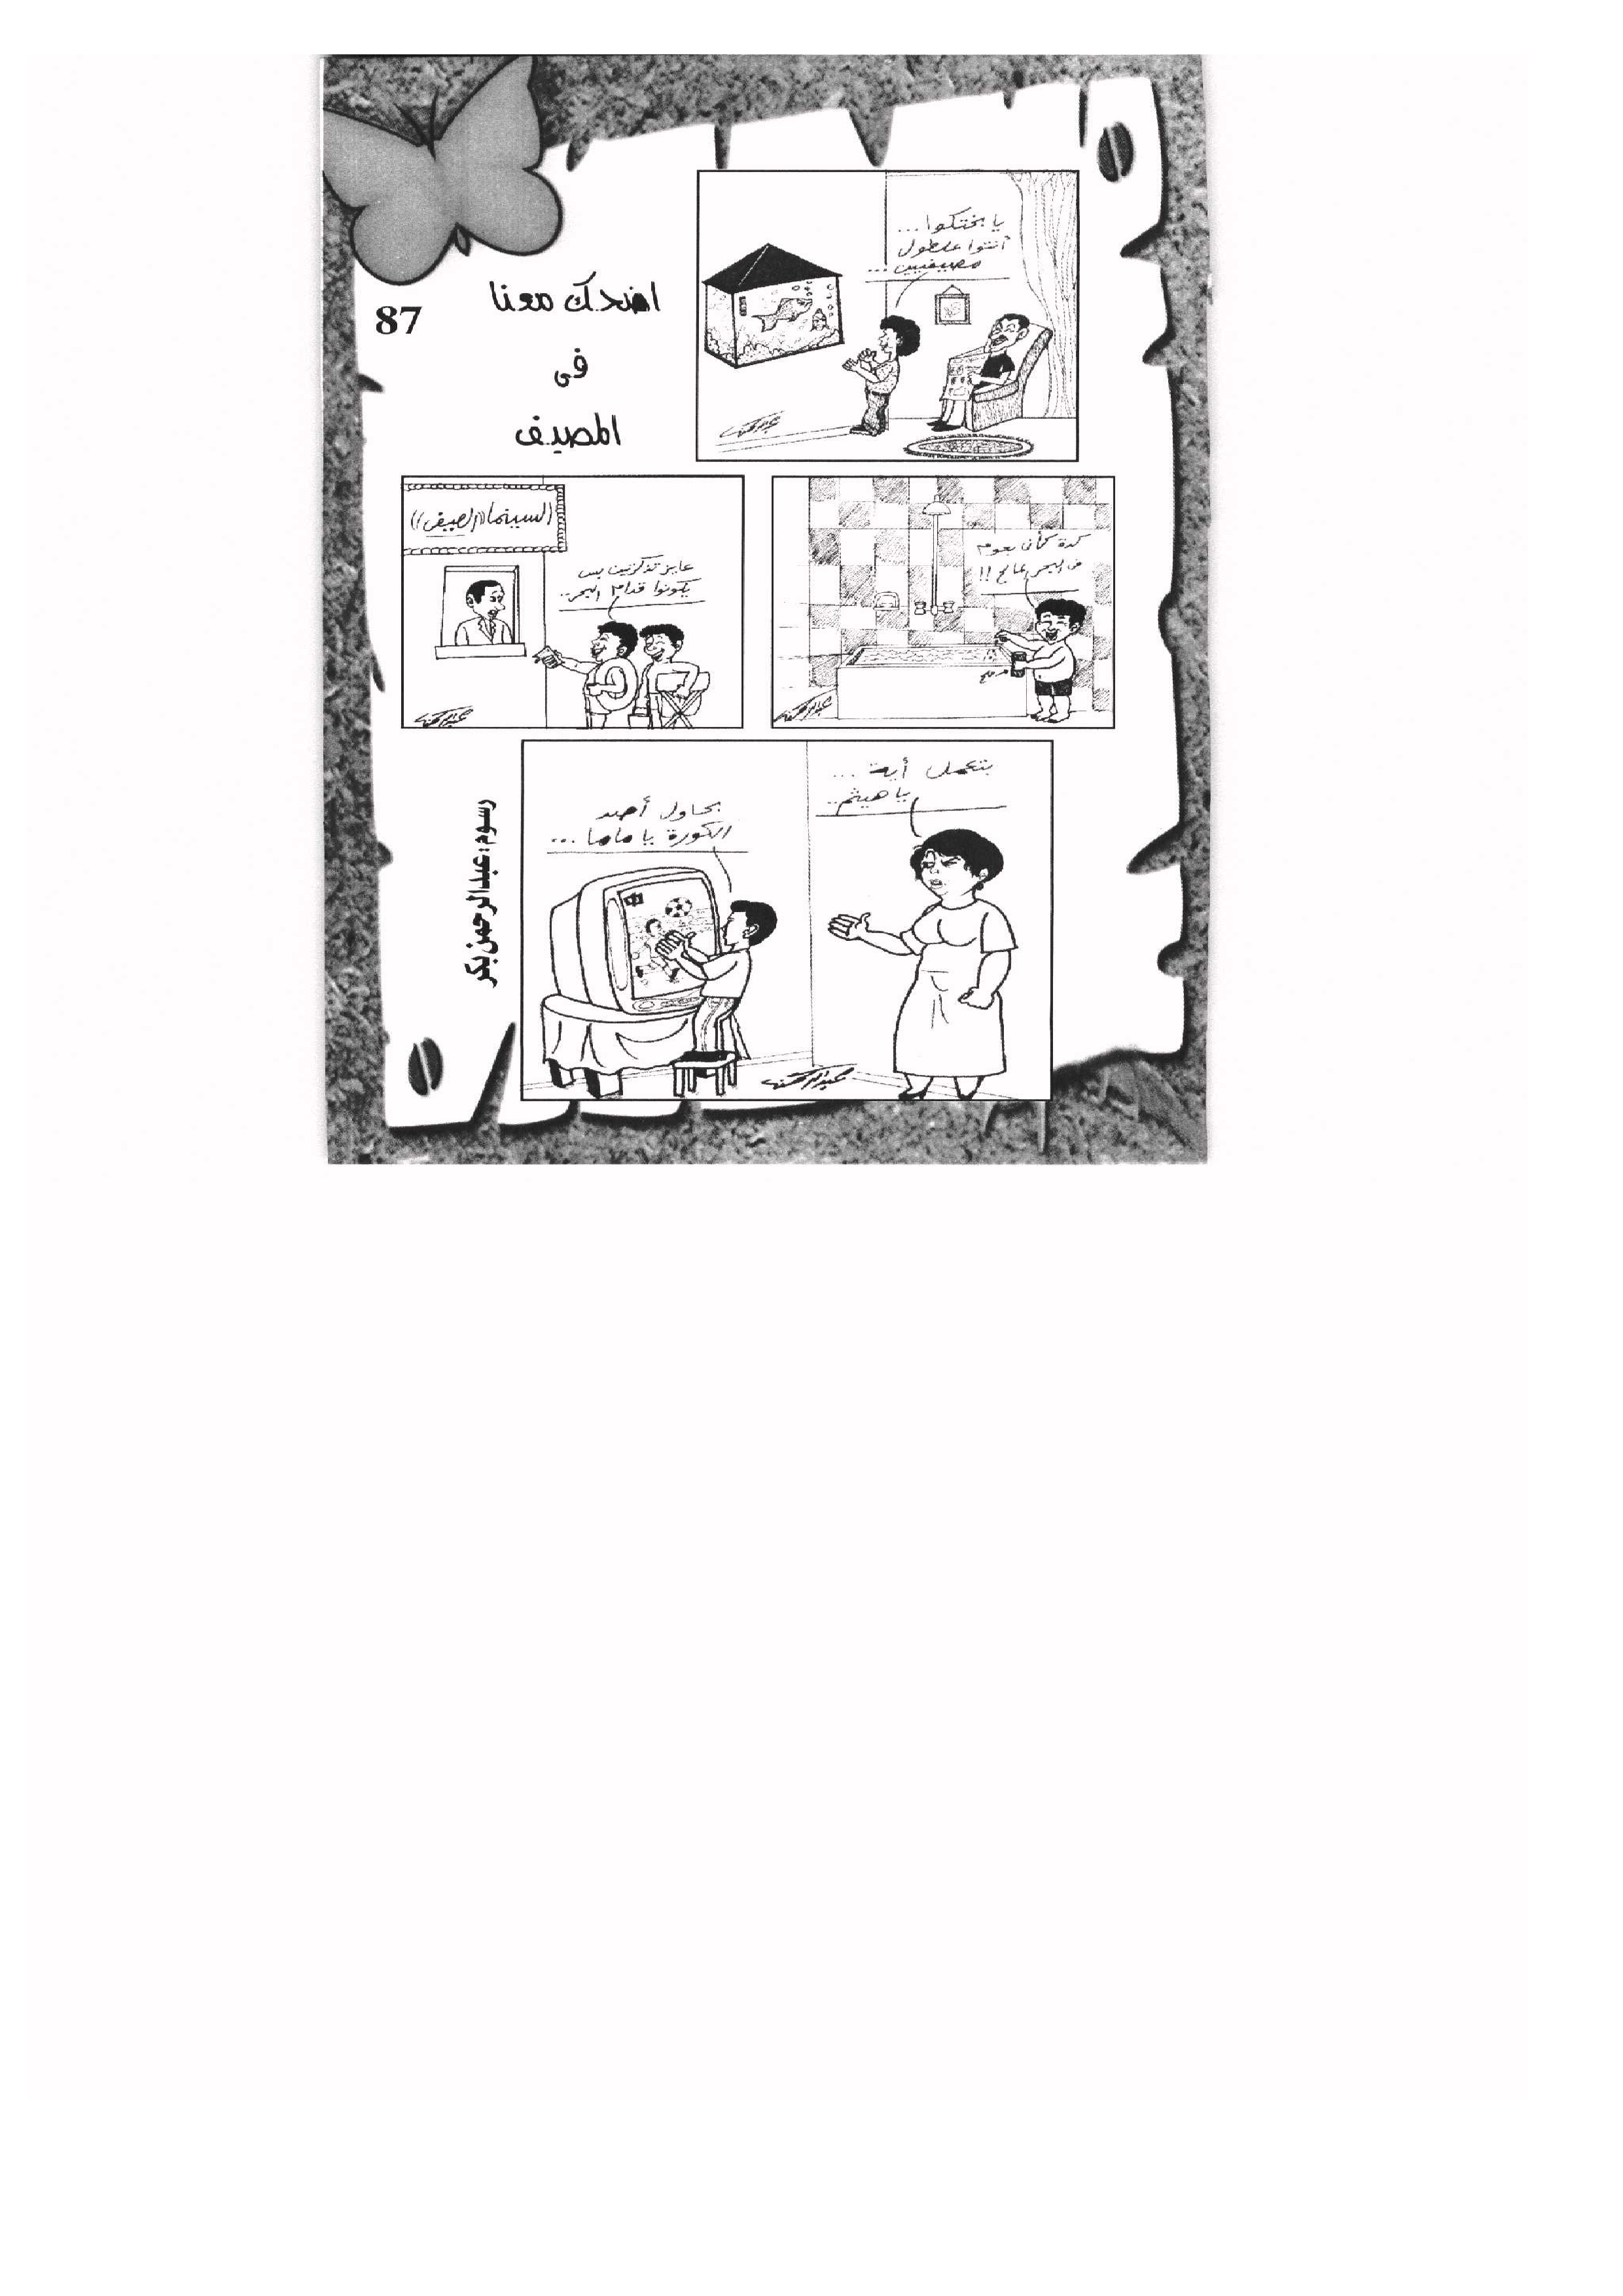 87
اضحك معنا
فى
المصيف
يا بختكوا...
أنتوا علطول
مصيفيين...
السينما الصيفى))
عايز تذكرتين بس
يكونوا قدام البحر..
كدة كأنى بعوم
فى البحر المالح!!
ملح
بتعمل أية...
يا هيثم..
بحاول أصد
الكورة يا ماما...
رسوم: عبدالرحمن بكر